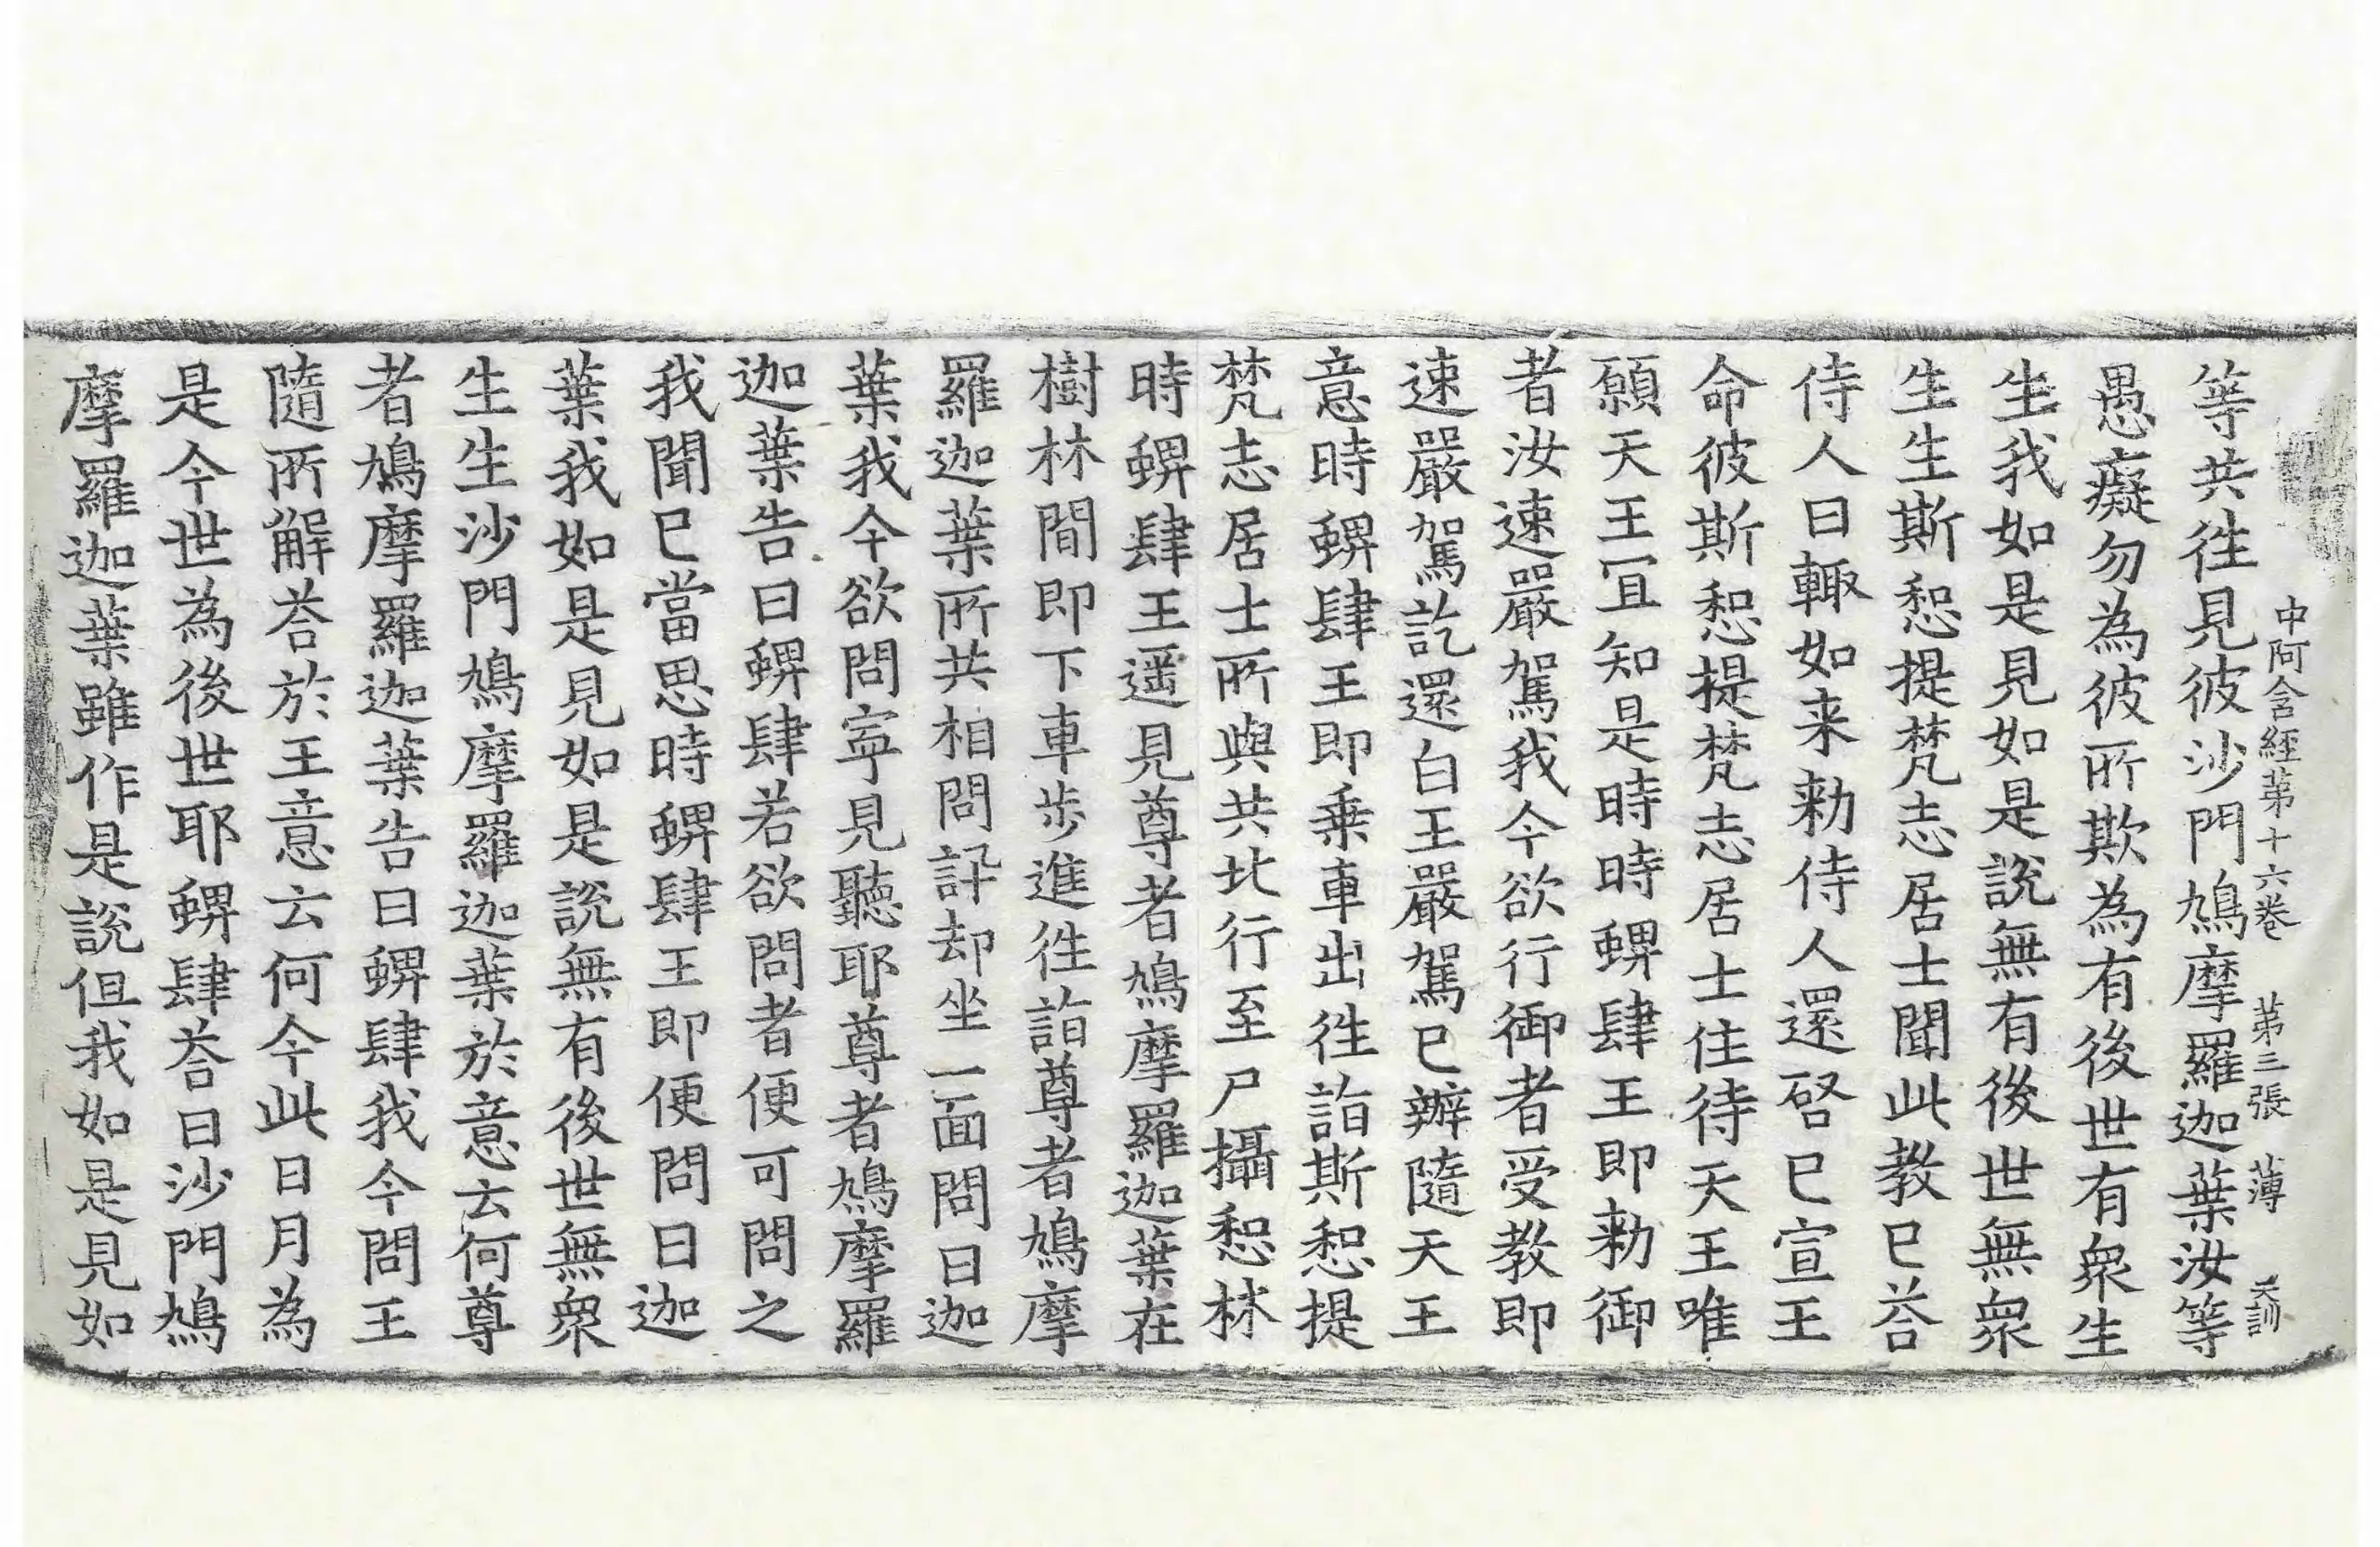 中阿含經第十六卷 第三張 薄 天訓
等共往見彼沙門鳩摩羅迦葉汝等
愚癡勿為彼所欺為有後世有眾生
生我如是見如是說無有後世無眾
生生斯惒提梵志居士聞此教已荅
侍人曰輙如来勑侍人還啓已宣王
命彼斯惒提梵志居士住待天王唯
願天王冝知是時時蜱肆王即勑御
者汝速嚴駕我今欲行御者受教即
速嚴駕訖還白王嚴駕已辦隨天王
意時蜱肆王即乗車出往詣斯惒提
梵志居士所與共北行至尸攝惒林
時蜱肆王遥見尊者鳩摩羅迦葉在
樹林間即下車歩進往詣尊者鳩摩
羅迦葉所共相問訊却坐一面問曰迦
葉我今欲問寧見聽耶尊者鳩摩羅
迦葉告曰蜱肆若欲問者便可問之
我聞已當思時蜱肆王即便問曰迦
葉我如是見如是說無有後世無眾
生生沙門鳩摩羅迦葉於意云何尊
者鳩摩羅迦葉告曰蜱肆我今問王
隨所解荅於王意云何今此日月為
是今世為後世耶蜱肆荅曰沙門鳩
摩羅迦葉雖作是說但我如是見如